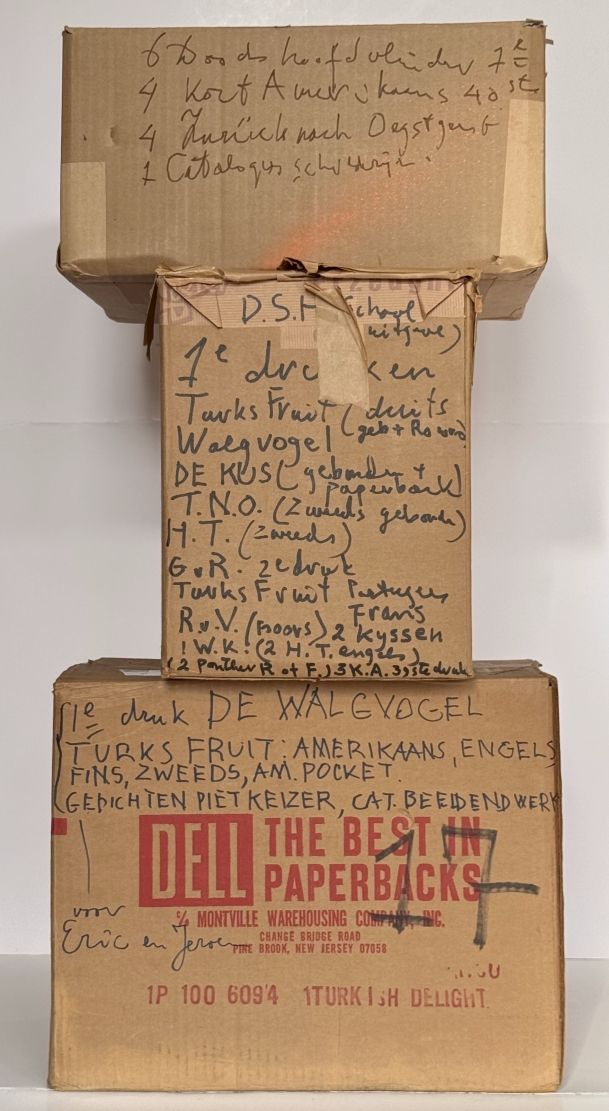 6 Doodshoofdvlinder 7e
4 Kort Amerikaans 40ste
4 Zurück nach Oegstgeest
1 Catalogus schilderijen.
D.S.H. School
uitgave)
1e drukken
Turks Fruit (duits
geb +
Walgvogel
DE KUS (gebonden +
paperback)
T.N.O. (Zweeds gebonden)
H.T. (Zweeds)
G.v.R. 2e druk
Turks Fruit Portugees
Frans
R.v.V. (Noors) 2 Kyssen
! W.K. (2 H.T. engels)
(2 Panther R of F.) 3 K.A. 39ste druk
1e druk DE WALGVOGEL
TURKS FRUIT: AMERIKAANS, ENGELS
FINS, ZWEEDS, AM. POCKET.
GEDICHTEN PIET KEIZER, CAT. BEELDEND WERK
DELL THE BEST IN
PAPERBACKS
17
c/o MONTVILLE WAREHOUSING COMPANY, INC.
CHANGE BRIDGE ROAD
PINE BROOK, NEW JERSEY 07058
voor
Eric en Jeroen
1P 100 6094 1TURKISH DELIGHT